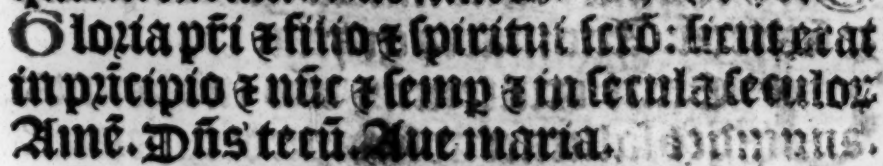 Gloria pr̄i ⁊ filio ⁊ ſpiritui ſctō: ſicut erat
in prīcipio ⁊ nūc ⁊ ſemꝑ ⁊ in ſecula ſeculoꝝ
Amē. Dn̄s tecū. Aue maria.